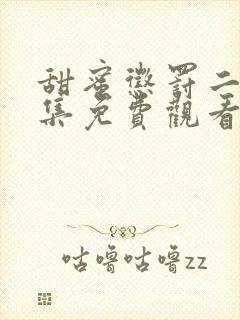 甜蜜懲罰二
集免費觀看
咕噜咕噜zz